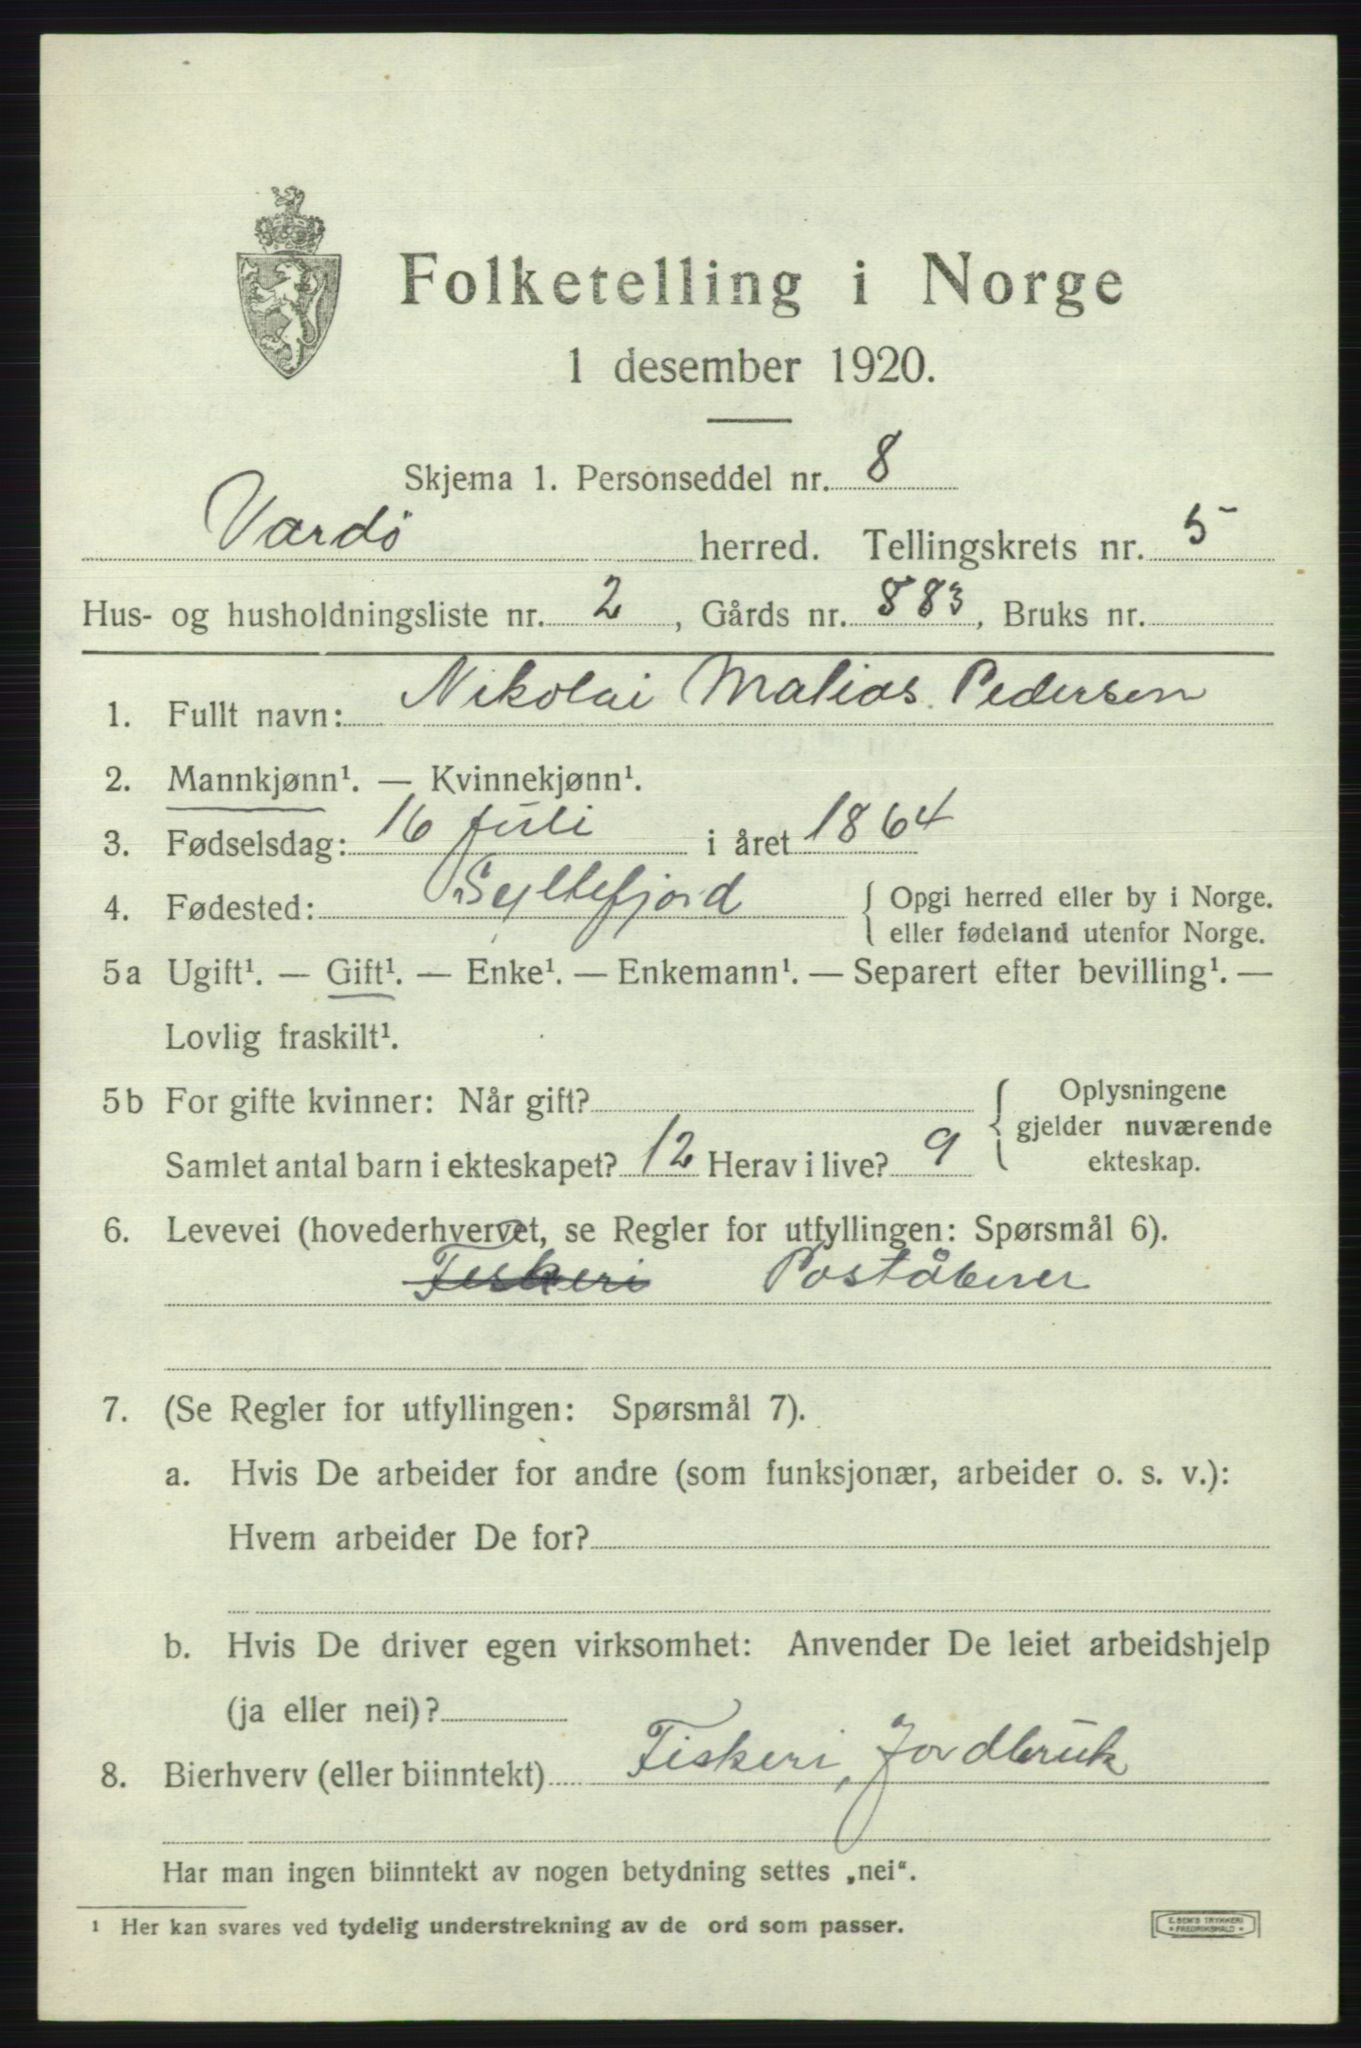 Folketelling i Norge
1 desember 1920.
Skjema 1. Personseddel nr. 8
Vardø herred. Tellingskrets nr. 5
Hus- og husholdningsliste nr. 2, Gårds nr. 883, Bruks nr.
1. Fullt navn: Nikolai Matias Pedersen
2. Mannkjønn¹. — Kvinnekjønn¹.
3. Fødselsdag: 16 Juli i året 1864
4. Fødested: Syltefjord { Opgi herred eller by i Norge.
eller fødeland utenfor Norge.
5a Ugift¹. — Gift¹. — Enke¹. — Enkemann¹. — Separert efter bevilling¹. —
Lovlig fraskilt¹.
5b For gifte kvinner: Når gift? { Oplysningene
gjelder nuværende
Samlet antal barn i ekteskapet? 12 Herav i live? 9 ekteskap.
6. Levevei (hovederhvervet, se Regler for utfyllingen: Spørsmål 6).
Fiskeri Poståbner
7. (Se Regler for utfyllingen: Spørsmål 7).
a. Hvis De arbeider for andre (som funksjonær, arbeider o. s. v.):
Hvem arbeider De for?
b. Hvis De driver egen virksomhet: Anvender De leiet arbeidshjelp
(ja eller nei)?
8. Bierhverv (eller biinntekt) Fiskeri, Jordbruk
Har man ingen biinntekt av nogen betydning settes „nei“.
¹ Her kan svares ved tydelig understrekning av de ord som passer.
E. SEM'S TRYKKERI
* FREDRIKSHALD *